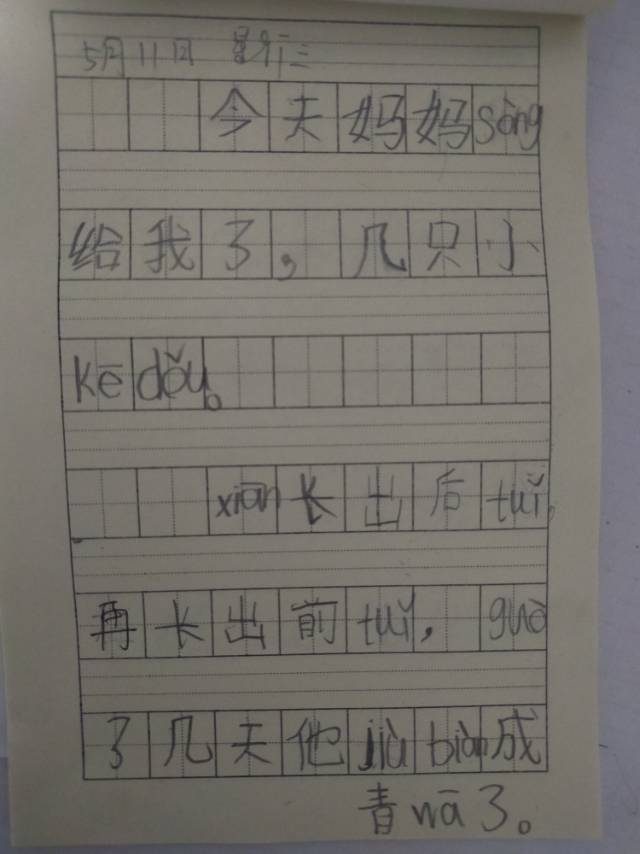 5月11日 星期三
今天妈妈sòng
给我了，几只小
kē dǒu。
xiān长出后tuǐ，
再长出前tuǐ，guò
了几天他jiù biàn成
青wā了。